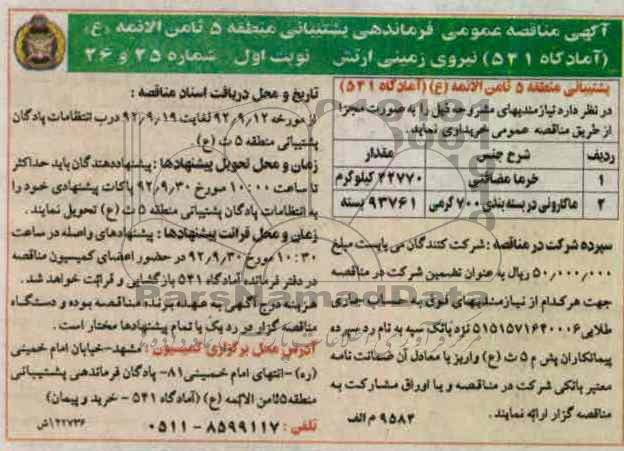 آگهی مناقصه عمومی فرماندهی پشتیبانی منطقه ۵ ثامن الائمه (ع)
(آمادگاه ۵۴۱) نیروی زمینی ارتش نوبت اول شماره ۲۵ و ۲۶
پشتیبانی منطقه ۵ ثامن الائمه (ع) (آمادگاه ۵۴۱)
در نظر دارد نیازمندیهای مشروحه ذیل را به صورت مجزا
از طریق مناقصه عمومی خریداری نماید
ردیف شرح جنس مقدار
۱ خرما مضافتی ۲۲۷۷۰ کیلوگرم
۲ ماکارونی در بسته بندی ۷۰۰ گرمی ۹۳۷۶۱ بسته
سپرده شرکت در مناقصه : شرکت کنندگان می بایست مبلغ
۵۰,۰۰۰,۰۰۰ ریال به عنوان تضمین شرکت در مناقصه
جهت هر کدام از نیازمندیهای فوق به حساب جاری
طلایی ۵۱۵۱۵۷۱۶۴۰۰۰۶ نزد بانک سپه به نام رد سپرده
پیمانکاران پش م ۵ ث (ع) واریز یا معادل آن ضمانت نامه
معتبر بانکی شرکت در مناقصه و یا اوراق مشارکت به
مناقصه گزار ارائه نمایند .
۹۵۸۳ م الف
تاریخ و محل دریافت اسناد مناقصه :
از مورخه ۹۲,۹,۱۲ لغایت ۹۲,۹,۱۹ درب انتظامات پادگان
پشتیبانی منطقه ۵ ث (ع)
زمان و محل تحویل پیشنهادها : پیشنهاددهندگان باید حداکثر
تا ساعت ۱۰:۰۰ مورخ ۹۲,۹,۳۰ پاکات پیشنهادی خود را
به انتظامات پادگان پشتیبانی منطقه ۵ ث (ع) تحویل نمایند .
زمان و محل قرائت پیشنهادها : پیشنهادهای واصله در ساعت
۱۰:۳۰ مورخ ۹۲,۹,۳۰ در حضور اعضای کمیسیون مناقصه
در دفتر فرمانده آمادگاه ۵۴۱ بازگشایی و قرائت خواهد شد .
هزینه درج آگهی به عهده برنده مناقصه بوده و دستگاه
مناقصه گزار در رد یک یا تمام پیشنهادها مختار است .
آدرس محل برگزاری کمیسیون : مشهد-خیابان امام خمینی
(ره) -انتهای امام خمینی ۸۱- پادگان فرماندهی پشتیبانی
منطقه ۵ ثامن الائمه (ع) (آمادگاه ۵۴۱ - خرید و پیمان)
تلفن : ۸۵۹۹۱۱۷ - ۰۵۱۱
۱۲۲۷۳۶ش
ParsNamadData